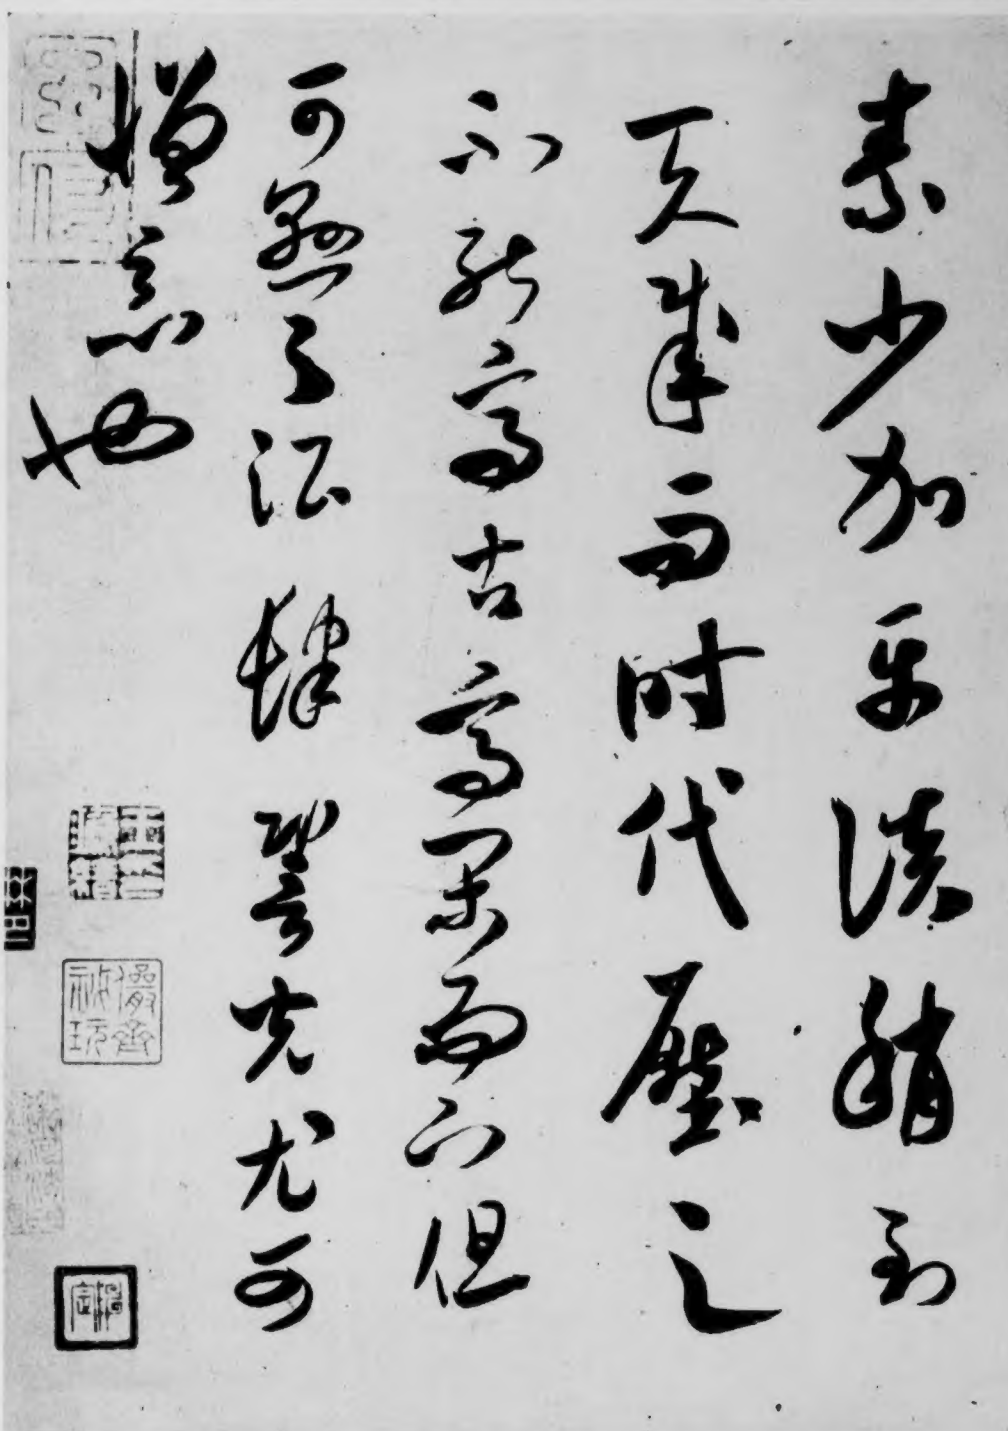 素少加平淡稍到
天成而時代壓之
不能高古高閑而下但
可懸之酒肆䛒光尤可
憎惡也
儼齋
秘玩